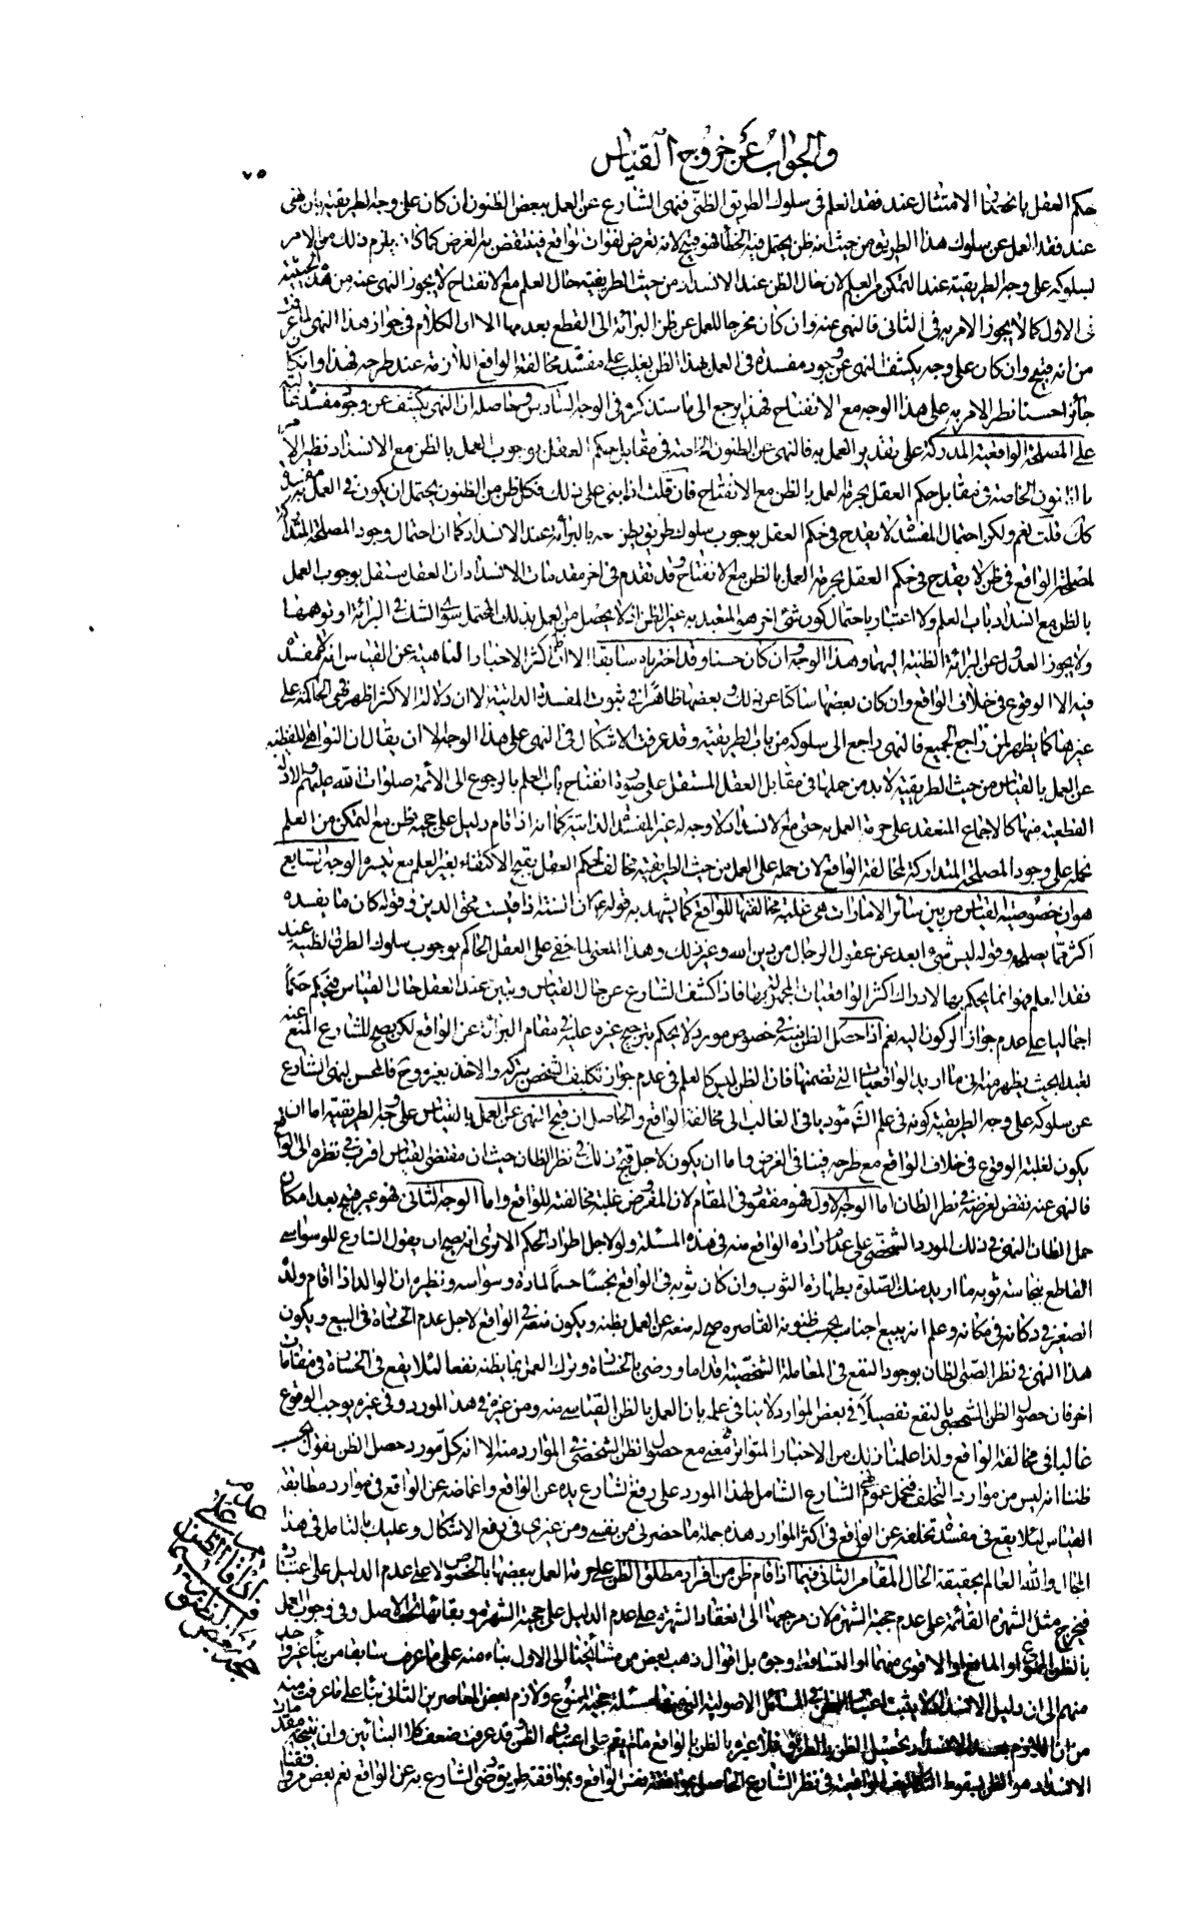 والجواب عن خروج القياس
٧٥
حكم العقل بانحصار الامتثال عند فقد العلم في سلوك الطريق الظني فنهى الشارع عن العمل ببعض الظنون ان كان على وجه الطريقية بان نهى
عند فقد العلم عن سلوك هذا الطريق من حيث انه ظن يحتمل فيه الخطأ فهو قبيح لانه تعرض لفوات الواقع فينتقض به الغرض كما كان يلزم ذلك من الامر
بسلوكه على وجه الطريقية عند التمكن من العلم لان حال الظن عند الانسداد من حيث الطريقية حال العلم مع الانفتاح لا يجوز النهى عنه من هذه الحيثية
في الاول كما لا يجوز الامر به في الثاني فالنهى عنه وان كان مخرجا للعمل عن ظن البرائة الى القطع بعدمها الا ان الكلام في جواز هذا النهى لما عرفت
من انه قبيح وان كان على وجه يكشف النهى عن وجود مفسدة في العمل بهذا الظن يغلب على مفسدة مخالفة الواقع اللازمة عند طرحه فهذا وان كان
جائزا حسنا نظير الامر به على هذا الوجه مع الانفتاح فهذا يرجع الى ما ستذكره في الوجه السادس وحاصله ان النهى يكشف عن وجود مفسدة غالبة
على المصلحة الواقعية المدركة على تقدير العمل به فالنهى عن الظنون الخاصة في مقابل حكم العقل بوجوب العمل بالظن مع الانسداد نظير الامر
بالظنون الخاصة في مقابل حكم العقل بحرمة العمل بالظن مع الانفتاح فان قلت اذا بنى على ذلك فكل ظن من الظنون يحتمل ان يكون في العمل به مفسدة
كك قلت نعم ولكن احتمال المفسدة لا يقدح في حكم العقل بوجوب سلوك طريق يظن معه بالبرائة عند الانسداد كما ان احتمال وجود المصلحة المتداركة
لمصلحة الواقع في ظن لا يقدح في حكم العقل بحرمة العمل بالظن مع الانفتاح وقد تقدم في اخر مقدمات الانسداد ان العقل مستقل بوجوب العمل
بالظن مع انسداد باب العلم ولا اعتبار باحتمال كون شئ اخر هو المتعبد به غير الظن اذ لا يحصل من العمل بذلك المحتمل سوى الشك في البرائة او توهمها
ولا يجوز العدول عن البرائة الظنية اليهما وهذا الوجه وان كان حسنا وقد اخترناه سابقا الا ان ظاهر اكثر الاخبار الناهية عن القياس انه لا مفسدة
فيه الا الوقوع في خلاف الواقع وان كان بعضها ساكتا عن ذلك وبعضها ظاهرا في ثبوت المفسدة الذاتية الا ان دلالة الاكثر اظهر فهى الحاكمة على
غيرها كما يظهر لمن راجع الجميع فالنهى راجع الى سلوكه من باب الطريقية وقد عرفت الاشكال في النهى على هذا الوجه الا ان يقال ان النواهى اللفظية
عن العمل بالقياس من حيث الطريقية لا بد من حملها في مقابل العقل المستقل على صورة انفتاح باب العلم بالرجوع الى الائمة صلوات الله عليهم والادلة
القطعية منها كالاجماع المنعقد على حرمة العمل به حتى مع الانسداد لا وجه له غير المفسدة الذاتية كما انه اذا قام دليل على حجية ظن مع التمكن من العلم
نحمله على وجود المصلحة المتداركة لمخالفة الواقع لان حمله على العمل من حيث الطريقية مخالف لحكم العقل بقبح الاكتفاء بغير العلم مع تيسره الوجه السابع
هو ان خصوصية القياس من بين سائر الامارات هى غلبة مخالفتها للواقع كما يشهد به قوله ع ان السنة اذا قيست محق الدين وقوله كان ما يفسده
اكثر مما يصلحه وقوله ليس شئ ابعد عن عقول الرجال من دين الله وغير ذلك وهذا المعنى لما خفى على العقل الحاكم بوجوب سلوك الطرق الظنية عند
فقد العلم فهو انما يحكم بها لادراك اكثر الواقعيات المجهولة بها فاذا كشف الشارع عن حال القياس وتبين عند العقل حال القياس فيحكم حكما
اجماليا على عدم جواز الركون اليه نعم اذا حصل الظن منه في خصوص مورد لا يحكم بترجيح غيره عليه في مقام البرائة عن الواقع لكن يصح للشارع المنع عنه
تعبدا بحيث يظهر منه انى ما اريد الواقعيات التى تضمنها فان الظن ليس كالعلم في عدم جواز تكليف الشخص بتركه والاخذ بغيره وح فالمحسن لنهى الشارع
عن سلوكه على وجه الطريقية كونه في علم الشارع مؤديا في الغالب الى مخالفة الواقع والحاصل ان قبح النهى عن العمل بالقياس على وجه الطريقية اما ان
يكون لغلبة الوقوع في خلاف الواقع مع طرحه فينافى الغرض واما ان يكون لاجل قبح ذلك في نظر الظان حيث ان مقتضى القياس اقرب في نظره الى الواقع
فالنهى عنه نقض لغرضه في نظر الظان اما الوجه الاول فهو مفقود في المقام لان المفروض غلبة مخالفته للواقع واما الوجه الثانى فهو غير قبيح بعد امكان
حمل الظان النهى في ذلك المورد الشخصى على عدم ارادة الواقع منه في هذه المسئلة ولو لاجل اطراد الحكم الا ترى انه يصح ان يقول الشارع للوسواسى
القاطع بنجاسة ثوبه ما اريد منك الصلوة بطهارة الثوب وان كان ثوبه في الواقع نجسا حسما لمادة وسواسه ونظيره ان الوالد اذا اقام ولده
الصغير في دكانه في مكانه وعلم انه يبيع اجناسه بحسب ظنونه القاصرة صح له منعه عن العمل بظنه ويكون منعه في الواقع لاجل عدم الخسارة في البيع ويكون
هذا النهى في نظر الصبى الظان بوجود النفع في المعاملة الشخصية اقداما ورضى بالخسارة وترك العمل بما يظنه نفعا لئلا يقع في الخسارة في مقامات
اخر فان حصول الظن الشخصى بالنفع تفصيلا في بعض الموارد لا ينافى علمه بان العمل بالظن القياسى منه ومن غيره في هذا المورد وفي غيره يوجب الوقوع
غالبا في مخالفة الواقع ولذا علمنا ذلك من الاخبار المتواترة معنى مع حصول الظن الشخصى في الموارد منه الا انه كل مورد حصل الظن نقول بحسب
ظننا انه ليس من موارد التخلف فنحمل عموم نهى الشارع الشامل لهذا المورد على رفع الشارع يده عن الواقع واغماضه عن الواقع في موارد مطابقة
القياس لئلا يقع في مفسدة تخلفه عن الواقع في اكثر الموارد هذه جملة ما حضرنى من نفسى ومن غيرى في دفع الاشكال وعليك بالتامل في هذا
المجال والله العالم بحقيقة الحال المقام الثانى فيما اذا قام ظن من افراد مطلق الظن على حرمة العمل ببعضها بالخصوص لا على عدم الدليل على اعتباره
فيخرج مثل الشهرة القائمة على عدم حجية الشهرة لان مرجعها الى انعقاد الشهرة على عدم الدليل على حجية الشهرة وبقائها تحت الاصل وفي وجوب العمل
بالظن الممنوع او المانع او الاقوى منهما او التساقط وجوه بل اقوال ذهب بعض من مشايخنا الى الاول بناء منه على ما عرف سابقا من بناء غير واحد
منهم الى ان دليل الانسداد لا يثبت اعتبار الظن في المسائل الاصولية التى منها مسئلة حجية الممنوع ولازم بعض المعاصرين الثانى بناء على ما عرفت منه
من ان اللازم بعد الانسداد تحصيل الظن بالطريق فلا عبرة بالظن بالواقع ما لم يقم على اعتباره الظن وقد عرفت ضعف كلا البنائين وان نتيجة مقدمات
الانسداد هو الظن بسقوط التكاليف الواقعية في نظر الشارع الحاصل بموافقة نفس الواقع وبموافقة طريق رضى الشارع به عن الواقع نعم بعض من وافقنا